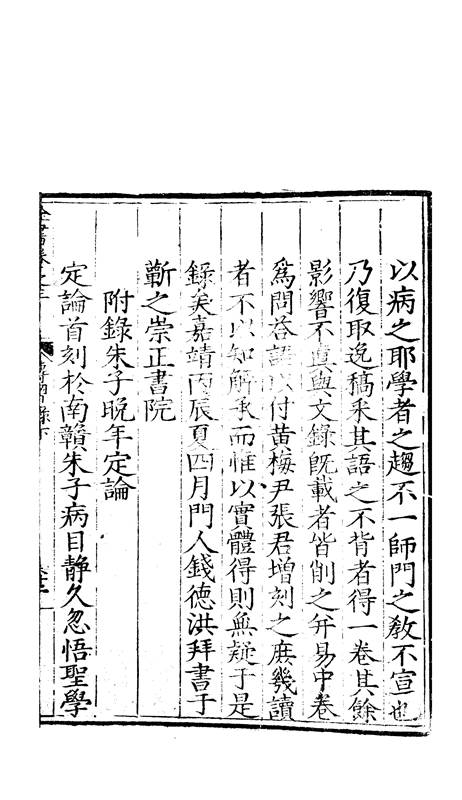 以病之耶學者之趨不一師門之教不宣也
乃復取逸稿采其語之不背者得一卷其餘
影響不真與文錄既載者皆削之并易中卷
爲問答語以付黄梅尹張君增刻之庶幾讀
者不以知解承而惟以實體得則無疑于是
錄矣嘉靖丙辰夏四月門人錢德洪拜書于
蘄之崇正書院
附錄朱子晚年定論
定論首刻於南贛朱子病目静久忽悟聖學